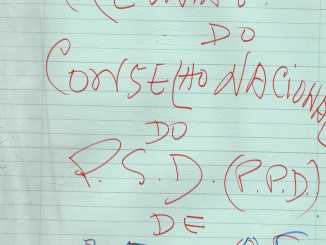 DO
CONSELHO NACIONAL
DO
P.S.D. (P.P.D.)
DE